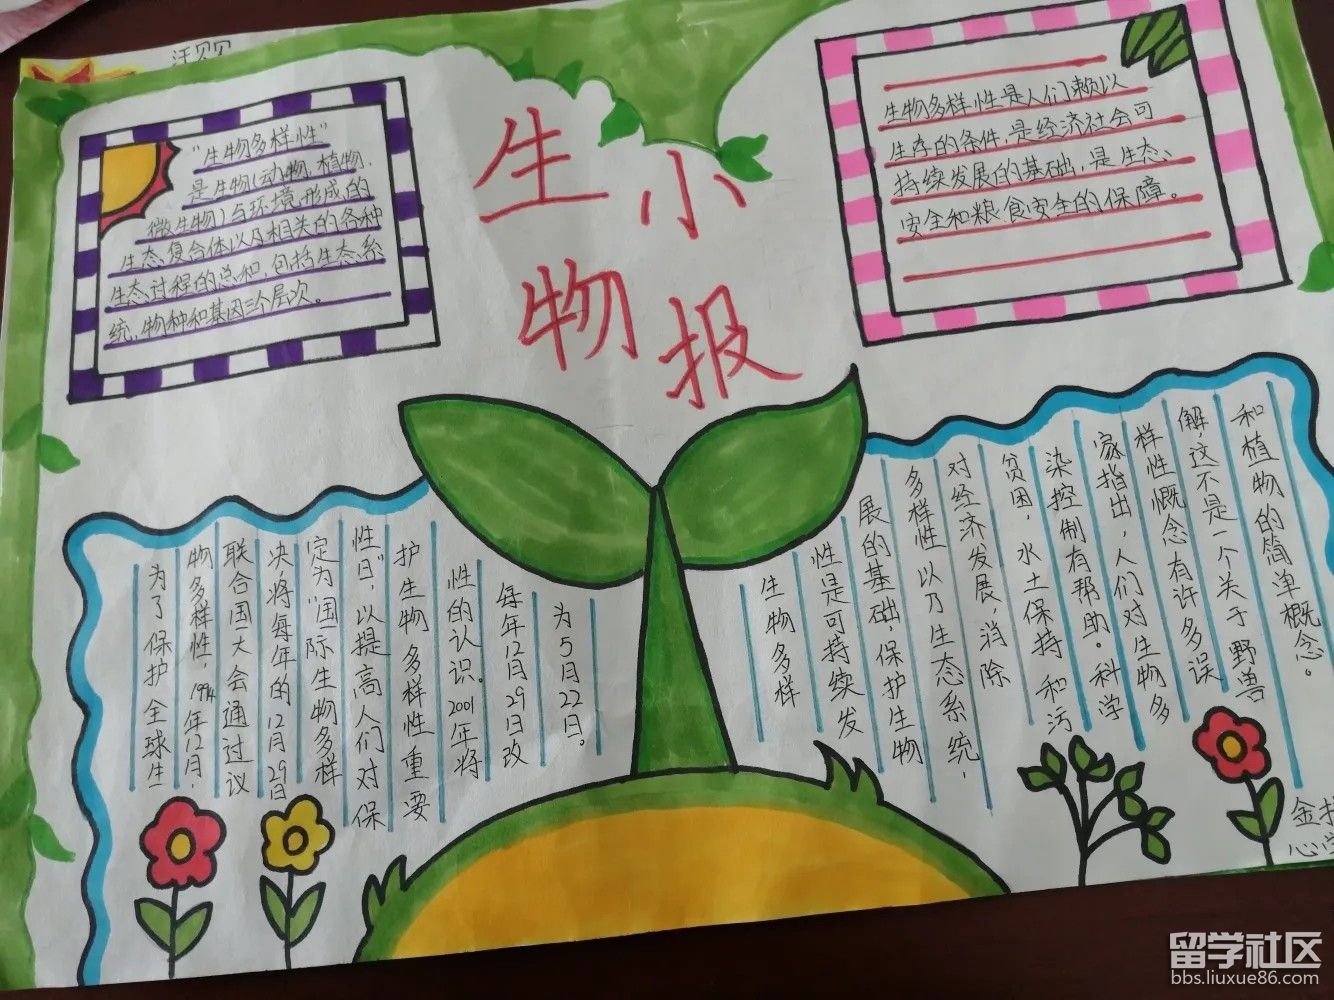 生物
小报
"生物多样性"
是生物(动物,植物,
微生物)与环境形成的
生态复合体以及相关的各种
生态过程的总和,包括生态系
统,物种和基因三个层次。
生物多样性是人们赖以
生存的条件,是经济社会可
持续发展的基础,是生态、
安全和粮食安全的保障。
为了保护全球生
物多样性,1994年12月,
联合国大会通过议
决将每年的12月29日
定为"国际生物多样
性日",以提高人们对保
护生物多样性重要
性的认识。2001年将
每年12月29日改
为5月22日。
生物多样
性是可持续发
展的基础,保护生物
多样性以乃生态系统,
对经济发展,消除
贫困,水土保持和污
染控制有帮助。科学
家指出,人们对生物多
样性慨念有许多误
解,这不是一个关于野兽
和植物的简单概念。
留学社区
bbs.liuxue86.com